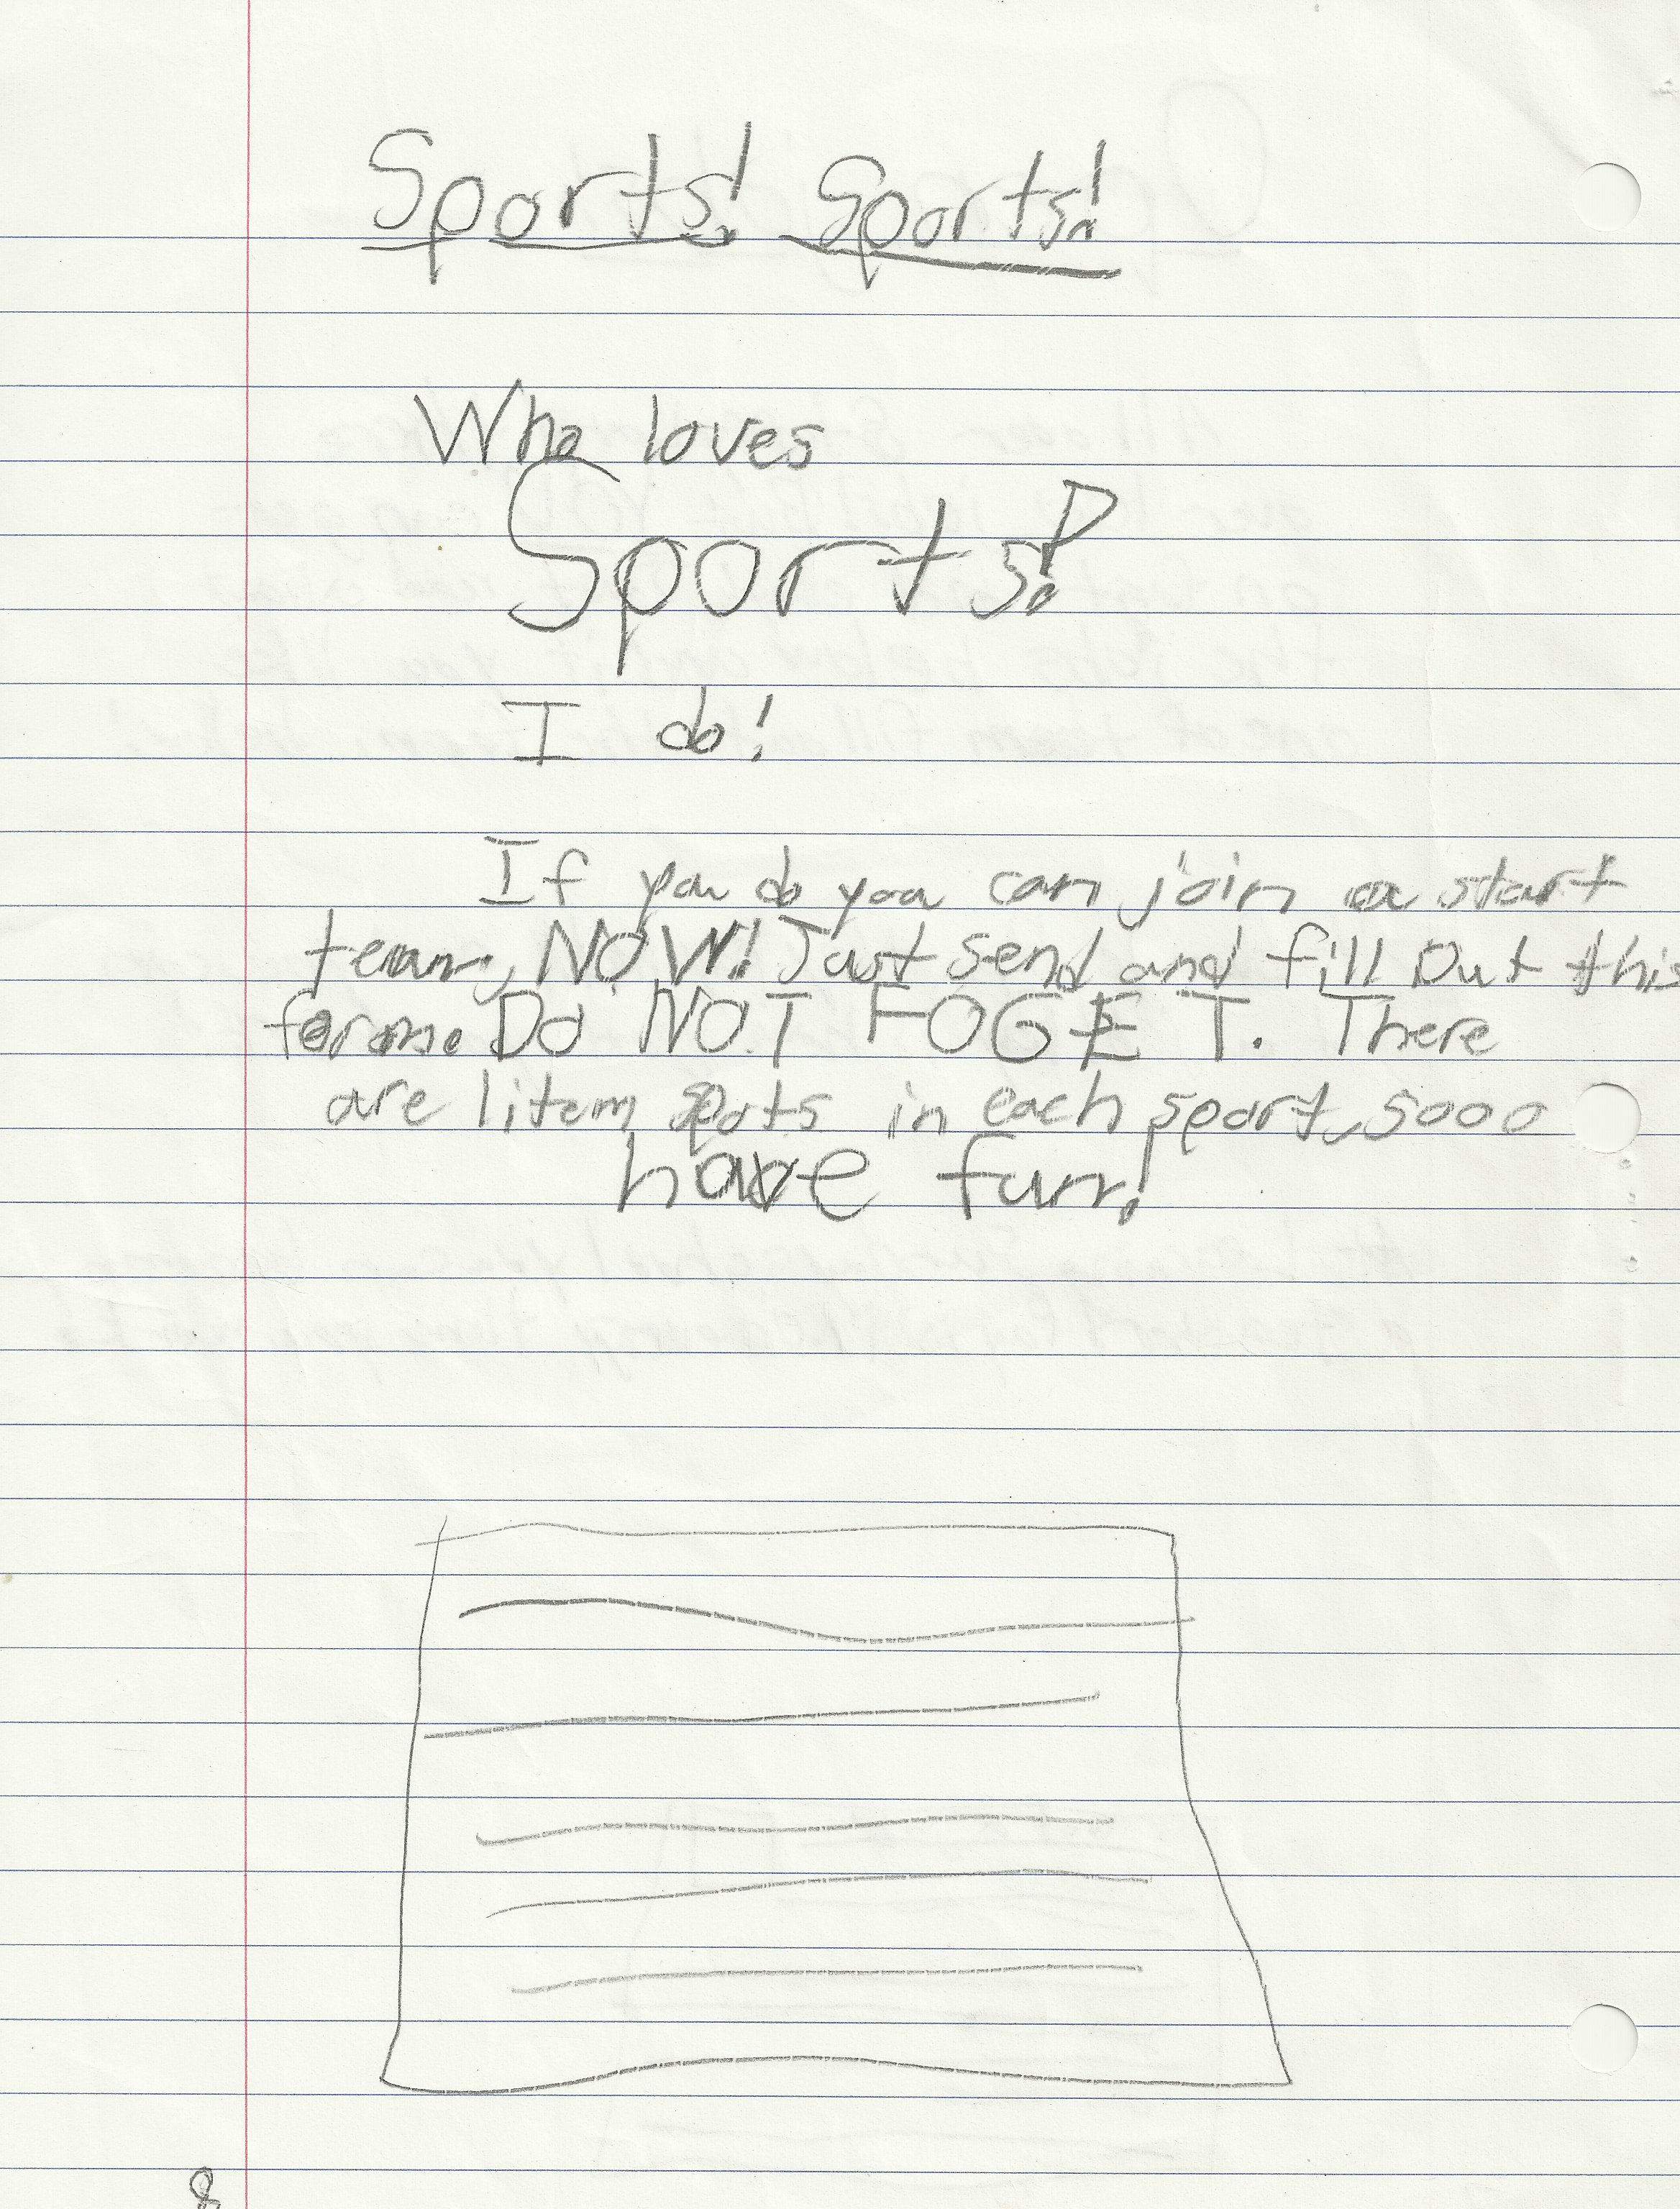 Sports! Sports!
Who loves
Sports?
I do!
If you do you can join or start
team, NOW! Just send and fill out this
form. DO NOT FOGET. There
are litem spots in each sport, sooo
have fun!
8